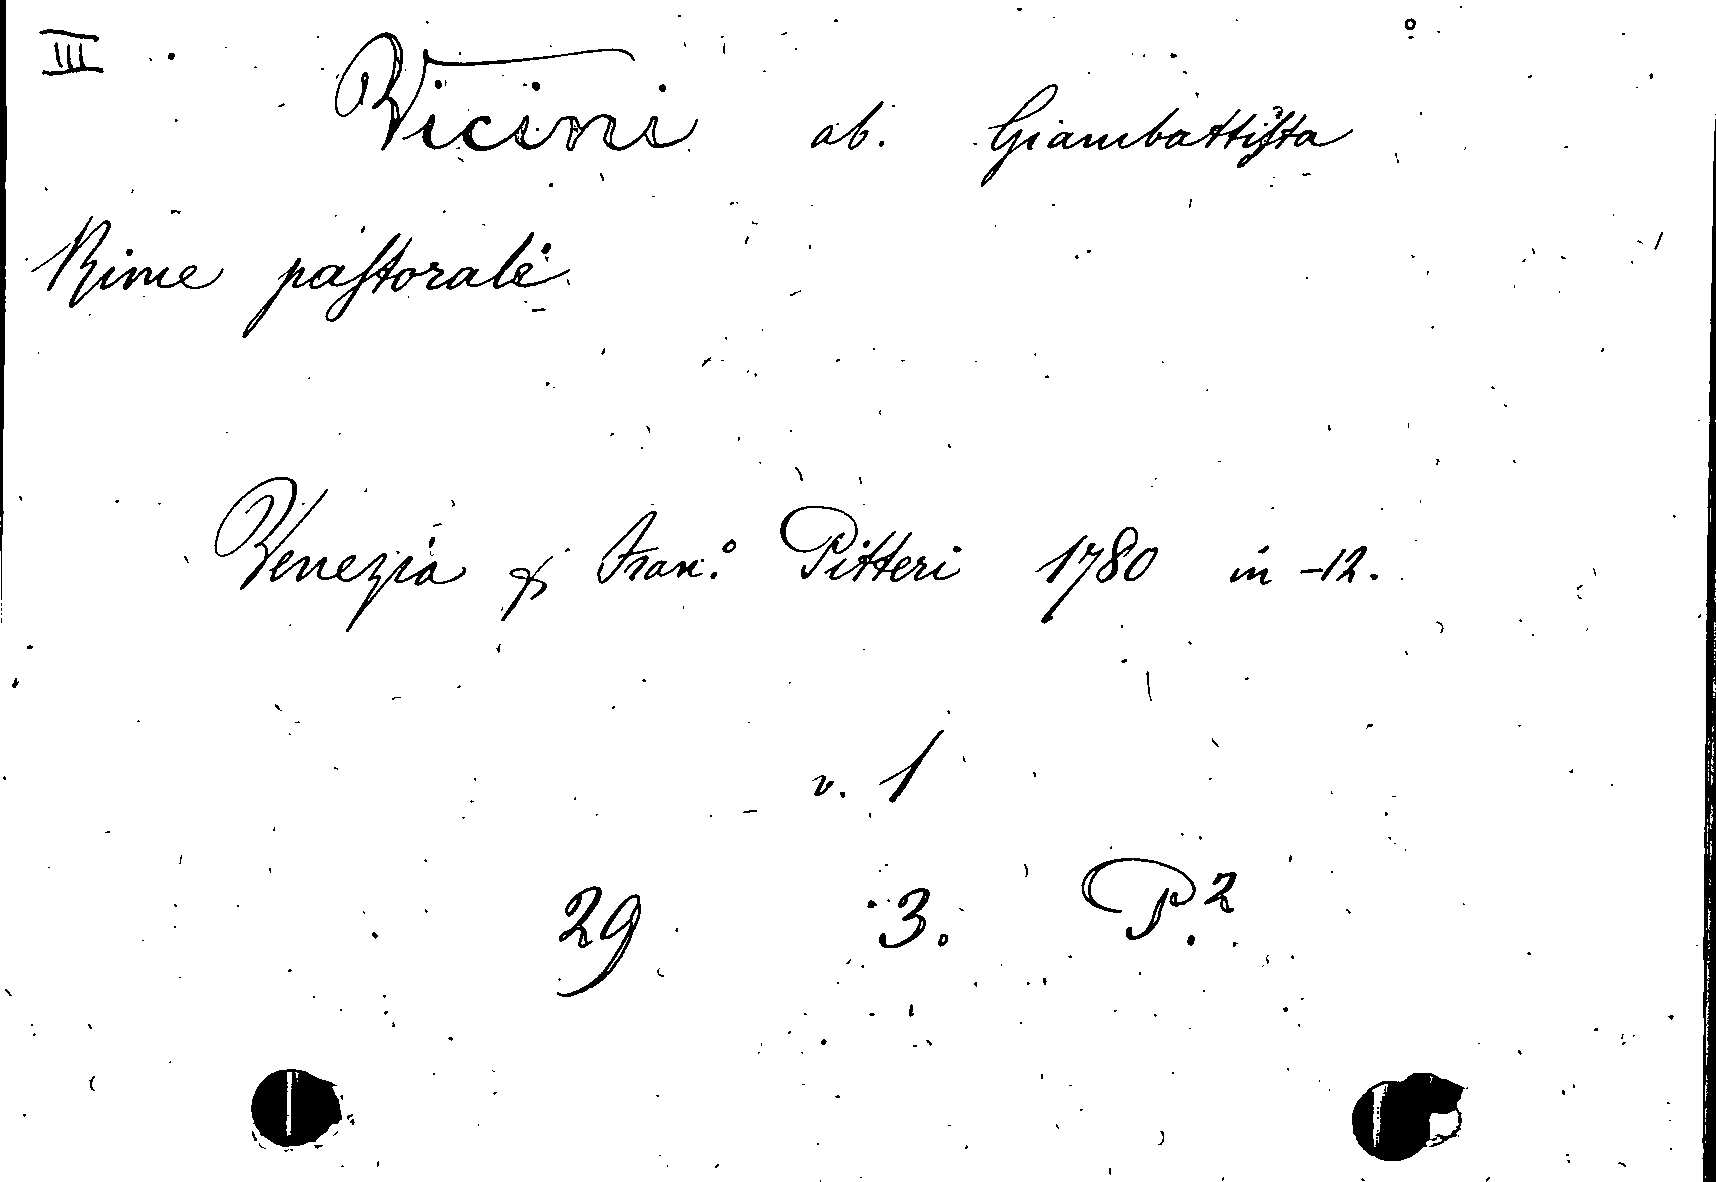 III
Vicini ab. Giambattista
Rime pastorali
Venezia p Fran.º Pitteri 1780 in -12.
v. 1
29 3. P.2